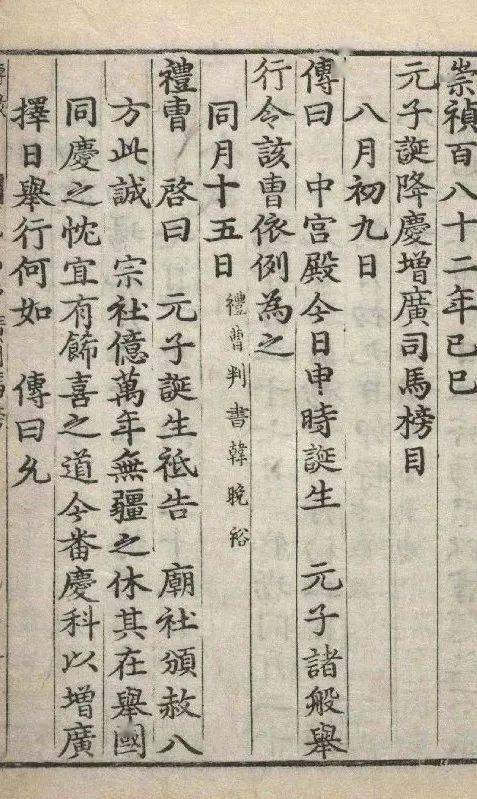 崇禎百八十二年己巳
元子誕降慶增廣司馬榜目
八月初九日
傳曰 中宮殿今日申時誕生 元子諸般舉
行令該曹依例為之
同月十五日 禮曹判書韓晚裕
禮曹 啓曰 元子誕生祗告 廟社頒赦八
方此誠 宗社億萬年無疆之休其在舉國
同慶之忱宜有飾喜之道今番慶科以增廣
擇日舉行何如 傳曰允